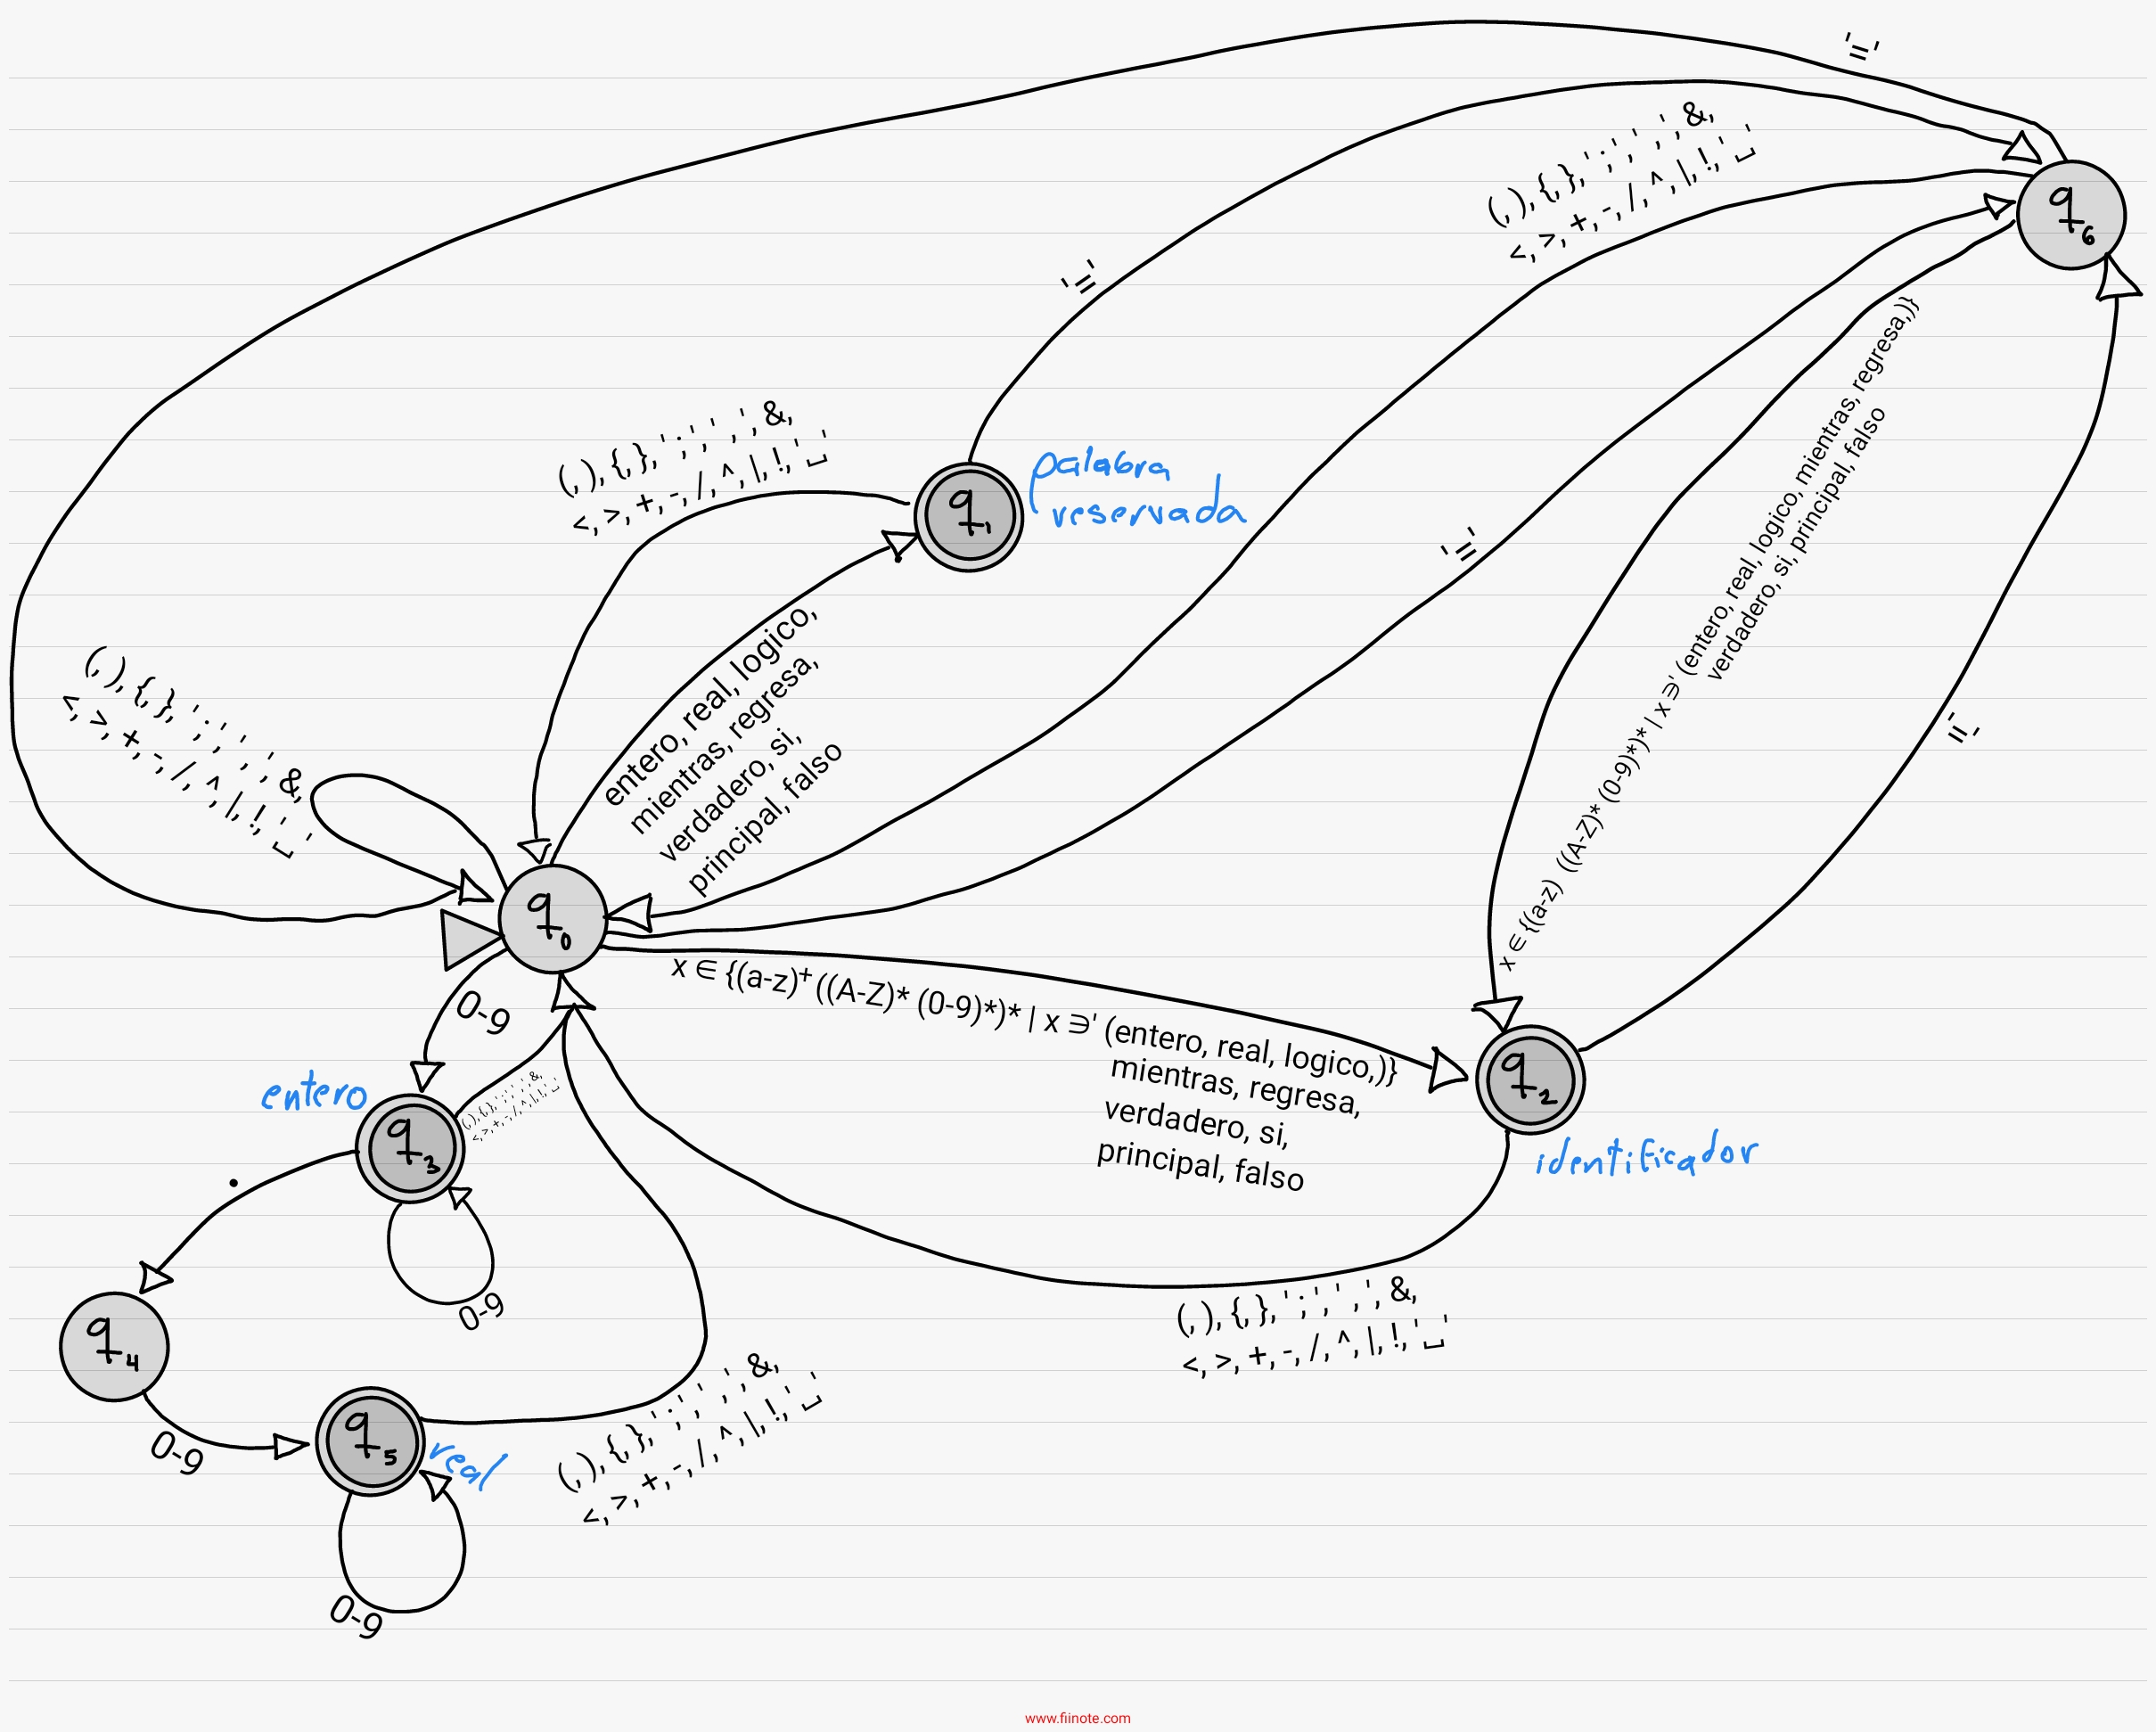 '='
(,), {,}, ' ; ', ' , ', &,
<, >, +, -, /, ^, |, !, '␣'
q6
'='
(,), {,}, ' ; ', ' , ', &,
<, >, +, -, /, ^, |, !, '␣'
q1
palabra
reservada
'='
x ∈ {(a-z) ((A-Z)* (0-9)*)* | x ∋' (entero, real, logico, mientras, regresa,)}
verdadero, si, principal, falso
'='
(,), {,}, ' ; ', ' , ', &,
<, >, +, -, /, ^, |, !, '␣'
entero, real, logico,
mientras, regresa,
verdadero, si,
principal, falso
q0
x ∈ {(a-z)+ ((A-Z)* (0-9)*)* | x ∋' (entero, real, logico,)}
mientras, regresa,
verdadero, si,
principal, falso
0-9
entero
q3
(,), {,}, ' ; ', ' , ', &,
<, >, +, -, /, ^, |, !, '␣'
q2
identificador
.
0-9
(,), {,}, ' ; ', ' , ', &,
<, >, +, -, /, ^, |, !, '␣'
q4
0-9
q5
real
(,), {,}, ' ; ', ' , ', &,
<, >, +, -, /, ^, |, !, '␣'
0-9
www.fiinote.com